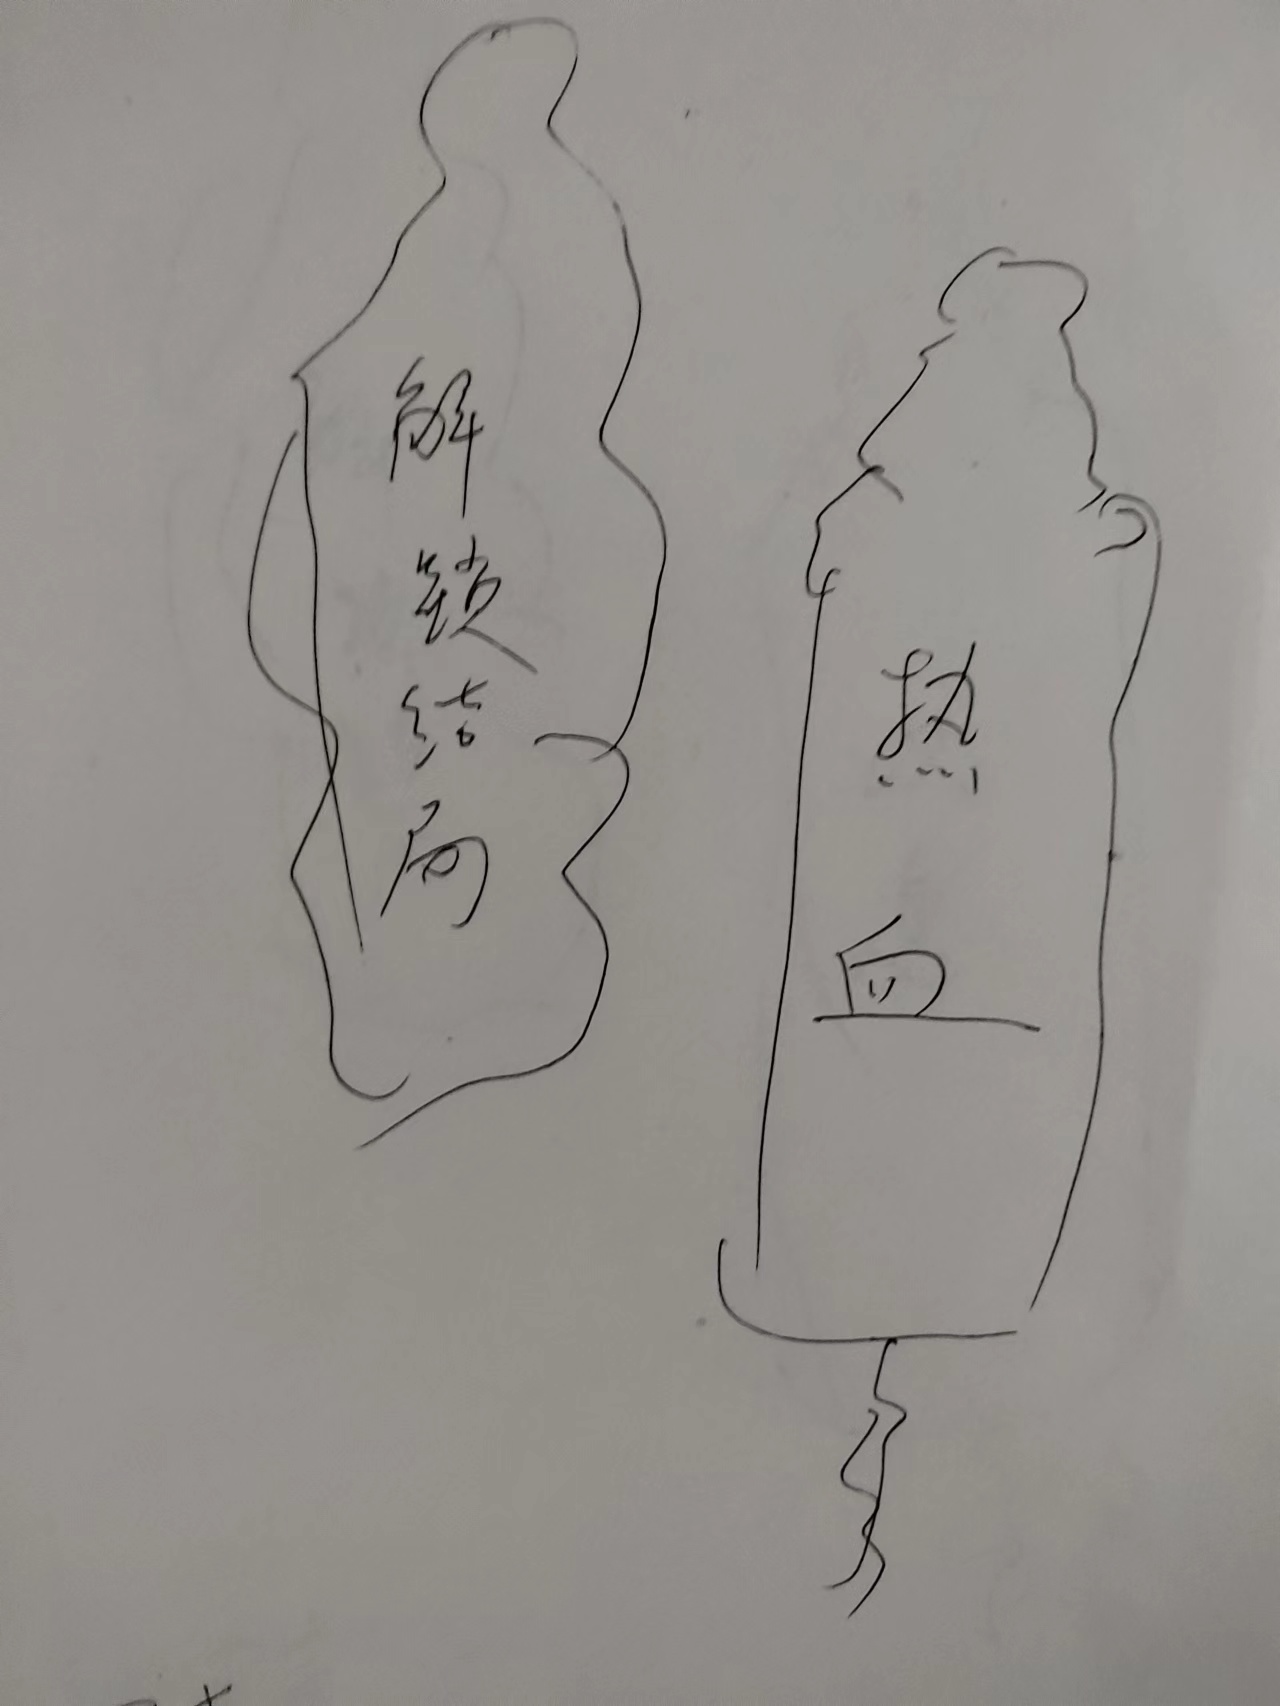 解锁结局
热血